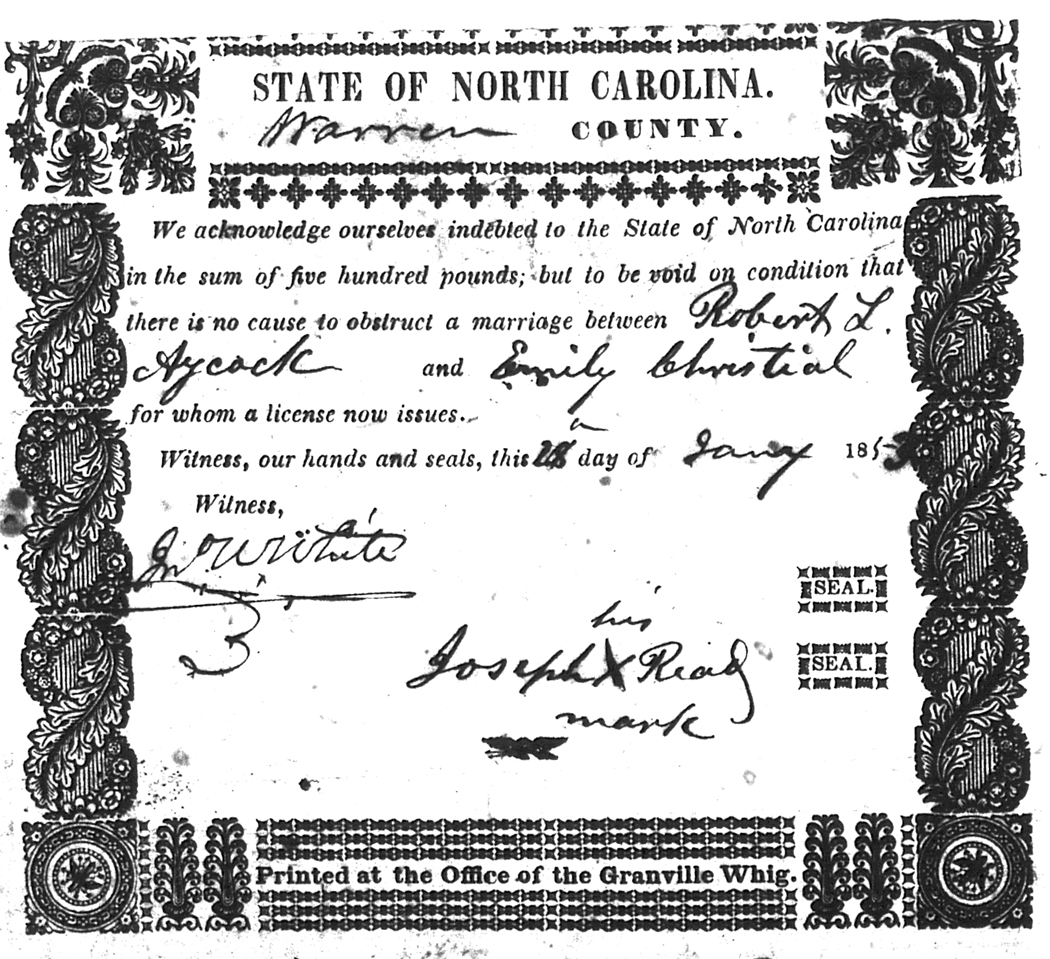 STATE OF NORTH CAROLINA.
Warren COUNTY.
We acknowledge ourselves indebted to the State of North Carolina
in the sum of five hundred pounds; but to be void on condition that
there is no cause to obstruct a marriage between Robert L.
Aycock and Emily Christial
for whom a license now issues.
Witness, our hands and seals, this 28 day of Jany 185
Witness,
Jno W White
SEAL.
his
Joseph X Read
SEAL.
mark
Printed at the Office of the Granville Whig.